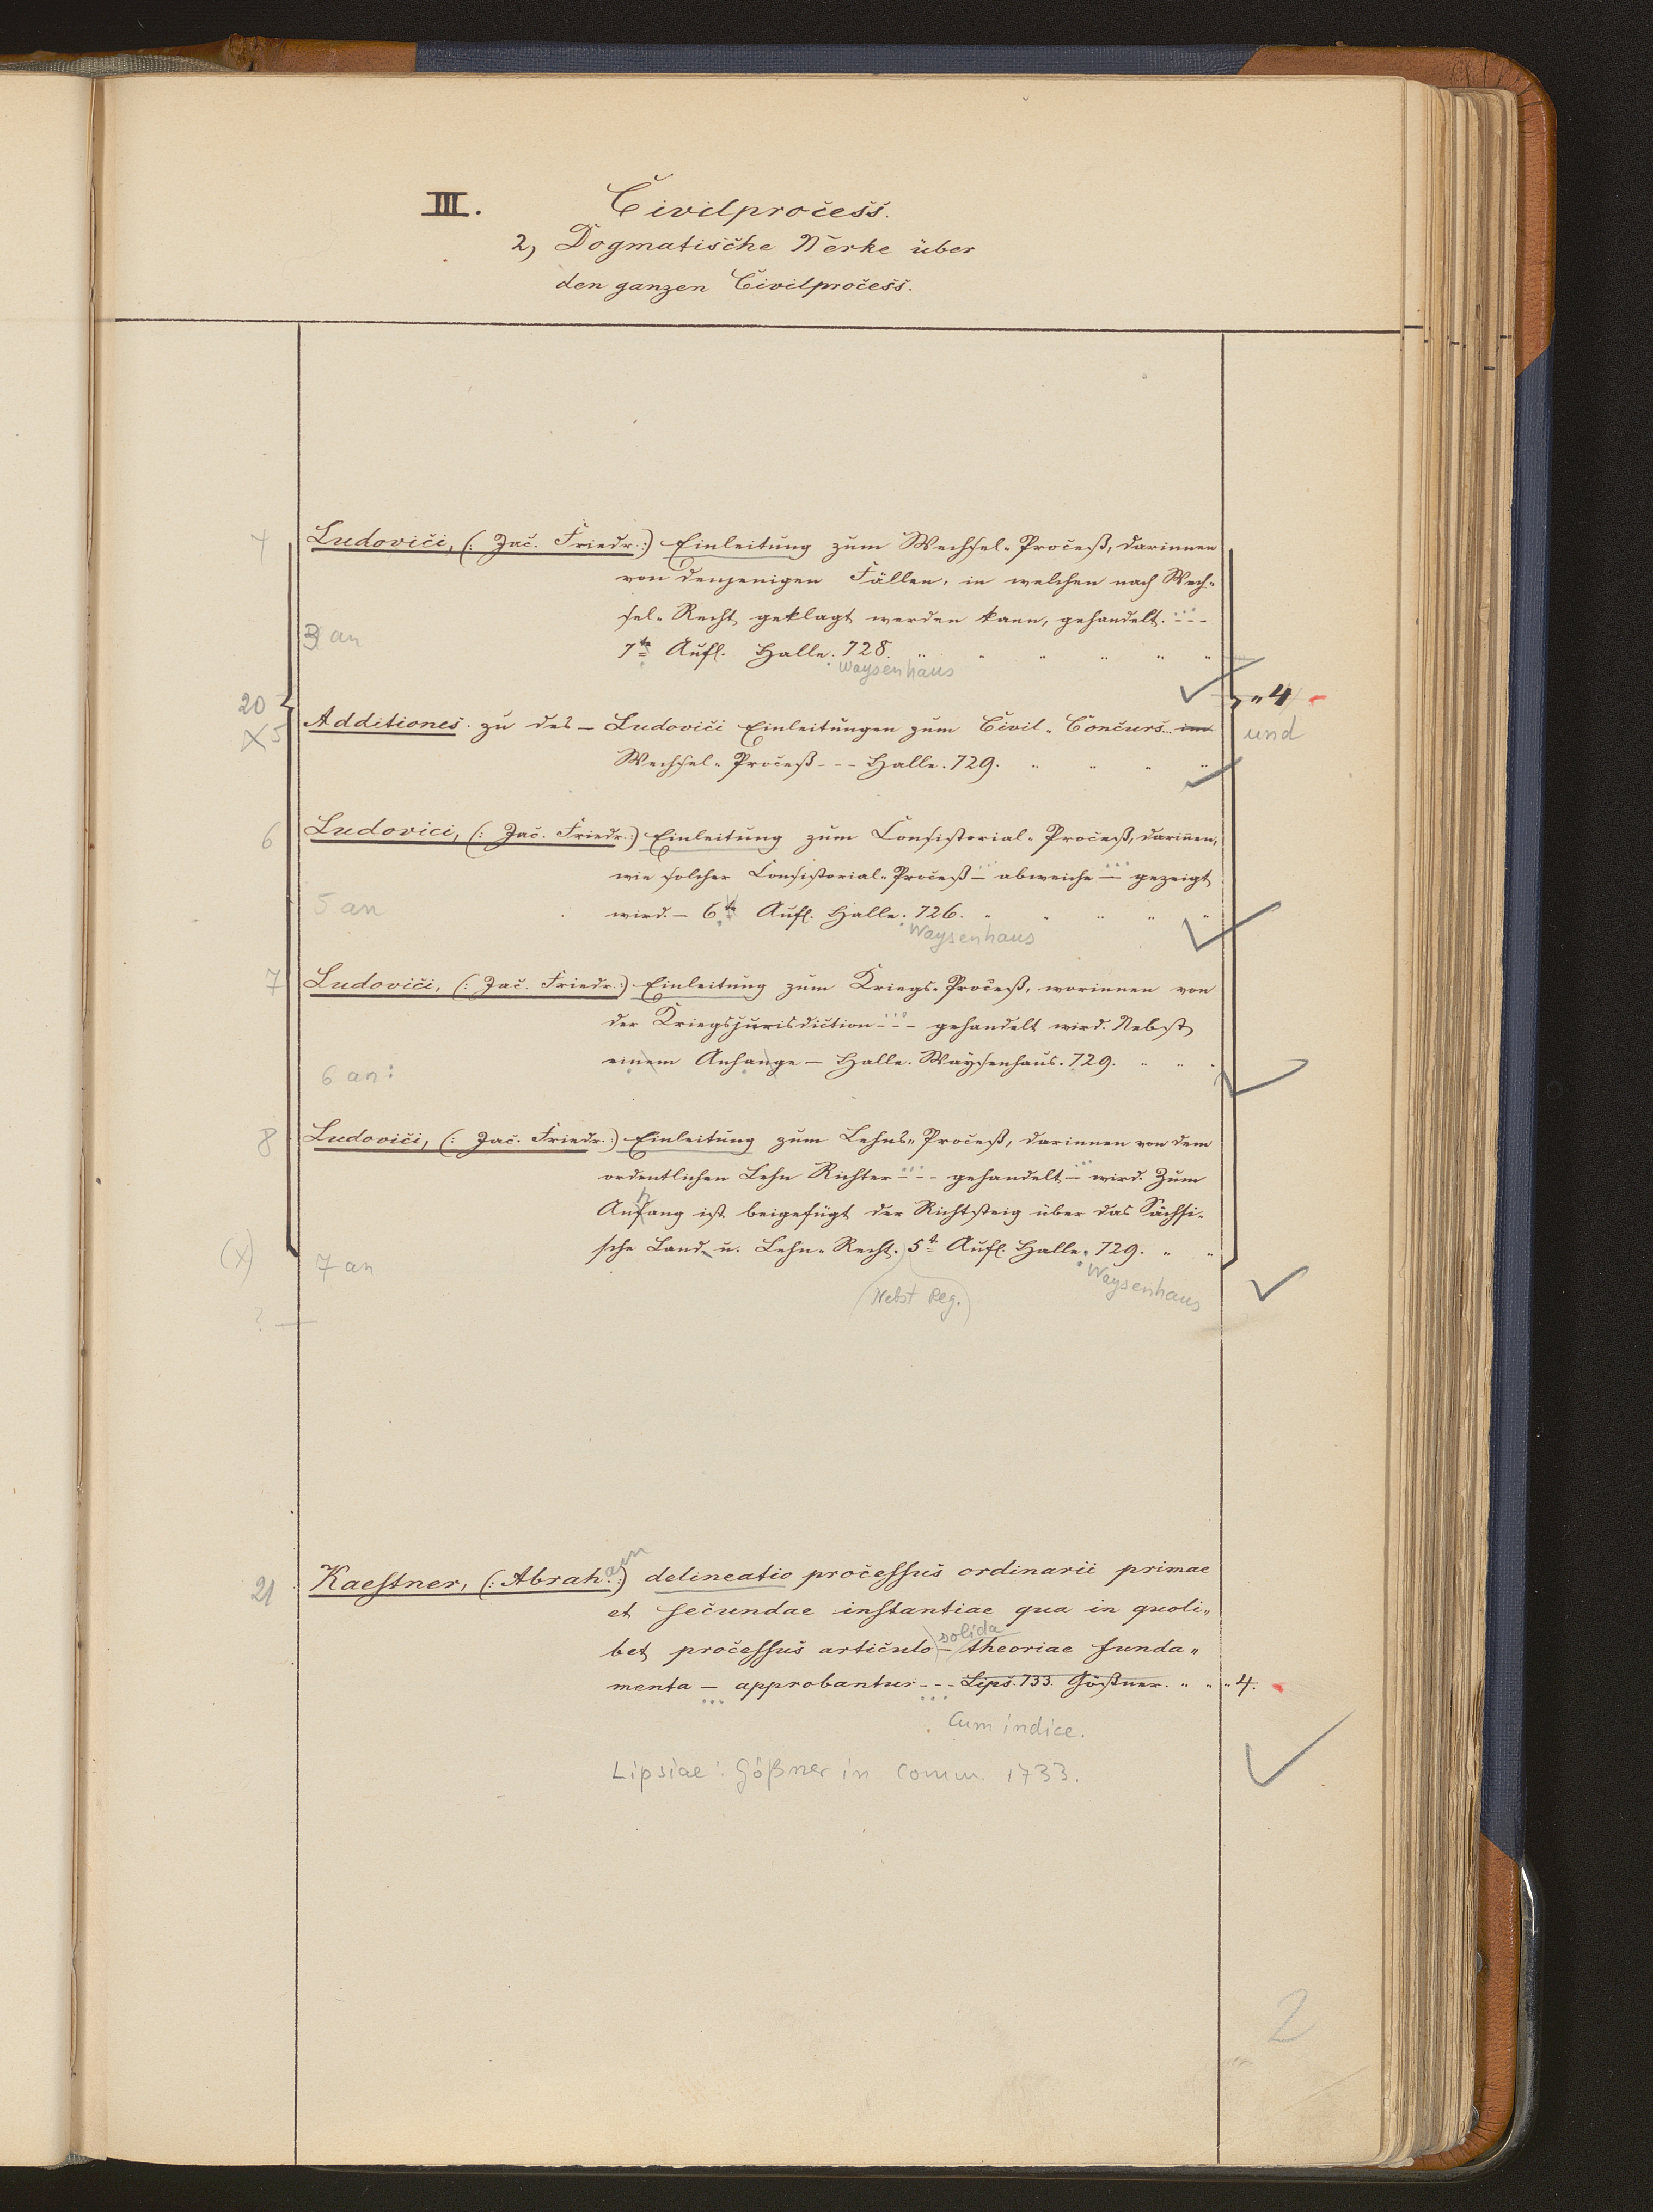 III. Civilprocess.
2, Dogmatische Werke über
den ganzen Civilprocess.
4 Ludovici, (: Jac. Friedr. :) Einleitung zum Wechsel-Proceß, darinnen
von denjenigen Fällen, in welchen nach Wech-
sel-Recht geklagt werden kann, gehandelt. ---
3 an 7te Aufl. Halle. 728. " " " " " "
Waysenhaus
20 " 4
5 Additiones zu des — Ludovici Einleitungen zum Civil- Concurs- und
Wechsel-Proceß --- Halle. 729. " " " "
6 Ludovici, (: Jac. Friedr. :) Einleitung zum Consistorial-Proceß, dariñen,
wie solcher Consistorial-Proceß — abweiche — gezeigt
5 an wird. — 6te Aufl. Halle. 726. " " " " "
Waysenhaus
7 Ludovici, (: Jac. Friedr. :) Einleitung zum Kriegs-Proceß, worinnen von
der Kriegsjurisdiction --- gehandelt wird. Nebst
einem Anhange — Halle. Waysenhaus. 729. " " "
6 an:
8 Ludovici, (: Jac. Friedr. :) Einleitung zum Lehns-Proceß, darinnen von dem
ordentlichen Lehn Richter --- gehandelt — wird. Zum
Anfang ist beigefügt der Richtsteig über das Sächsi-
(x) sche Land- u. Lehn-Recht. 5t Aufl. Halle. 729. " "
7 an Waysenhaus
(Nebst Reg.)
?
21 Kaestner, (: Abraham :) delineatio processus ordinarii primae
et secundae instantiae qua in quoli-
solida
bet processus articulo — theoriae funda-
menta — approbantur --- Lips. 733. Gößner. " " " 4.
Cum indice.
Lipsiae: Gößner in Comm. 1733.
2